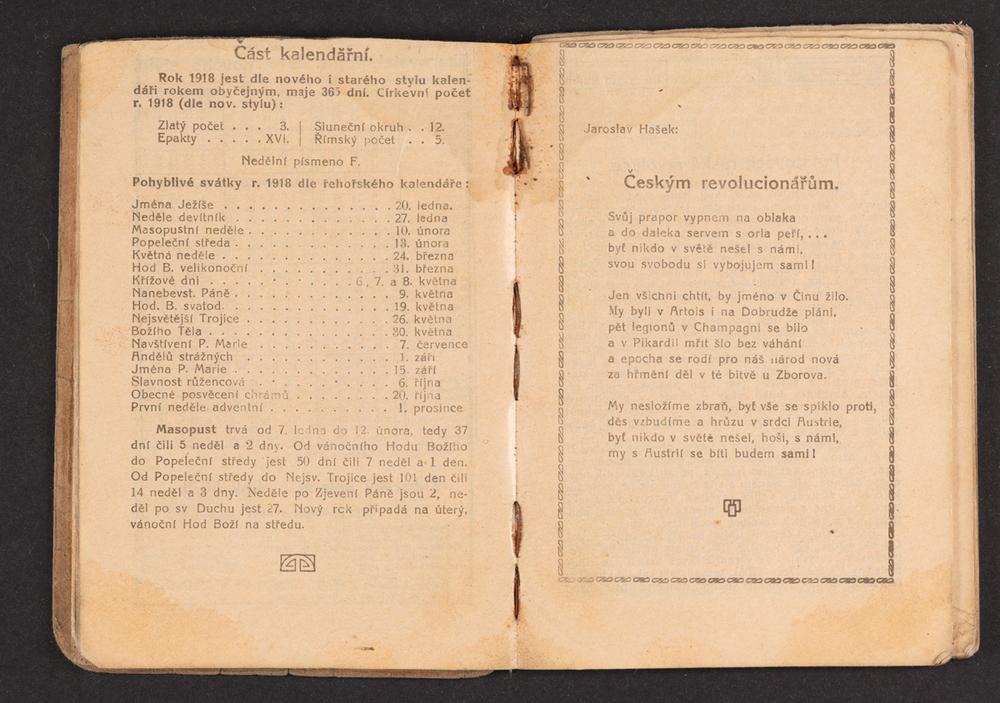 Část kalendářní.
Rok 1918 jest dle nového i starého stylu kalen-
dáři rokem obyčejným, maje 365 dní. Církevní počet
r. 1918 (dle nov. stylu):
Zlatý počet . . . 3. | Sluneční okruh . . 12.
Epakty . . . . . XVI. | Římský počet . . 5.
Nedělní písmeno F.
Pohyblivé svátky r. 1918 dle řehořského kalendáře:
Jména Ježíše . . . . . . . . . . . . . 20. ledna.
Neděle devítník . . . . . . . . . . . . 27. ledna
Masopustní neděle . . . . . . . . . . . 10. února
Popeleční středa . . . . . . . . . . . . 13. února
Květná neděle . . . . . . . . . . . . . 24. března
Hod B. velikonoční . . . . . . . . . . 31. března
Křížové dni . . . . . . . . . . 6., 7. a 8. května
Nanebevst. Páně . . . . . . . . . . . . 9. května
Hod. B. svatod. . . . . . . . . . . . . 19. května
Nejsvětější Trojice . . . . . . . . . . . 26. května
Božího Těla . . . . . . . . . . . . . . 30. května
Navštívení P. Marie . . . . . . . . . . 7. července
Andělů strážných . . . . . . . . . . . 1. září
Jména P. Marie . . . . . . . . . . . . 15. září
Slavnost růžencová . . . . . . . . . . 6. října
Obecné posvěcení chrámů . . . . . . . 20. října
První neděle adventní . . . . . . . . . 1. prosince
Masopust trvá od 7. ledna do 12. února, tedy 37
dní čili 5 neděl a 2 dny. Od vánočního Hodu Božího
do Popeleční středy jest 50 dní čili 7 neděl a 1 den.
Od Popeleční středy do Nejsv. Trojice jest 101 den čili
14 neděl a 3 dny. Neděle po Zjevení Páně jsou 2, ne-
děl po sv Duchu jest 27. Nový rok připadá na úterý,
vánoční Hod Boží na středu.
Jaroslav Hašek:
Českým revolucionářům.
Svůj prapor vypnem na oblaka
a do daleka servem s orla peří, ...
byť nikdo v světě nešel s námi,
svou svobodu si vybojujem sami!
Jen všichni chtít, by jméno v Činu žilo.
My byli v Artois i na Dobrudže pláni,
pět legionů v Champagni se bilo
a v Pikardii mřít šlo bez váhání
a epocha se rodí pro náš národ nová
za hřmění děl v té bitvě u Zborova.
My nesložíme zbraň, byť vše se spiklo proti,
děs vzbudíme a hrůzu v srdci Austrie,
byť nikdo v světě nešel, hoši, s námi,
my s Austrií se bíti budem sami!